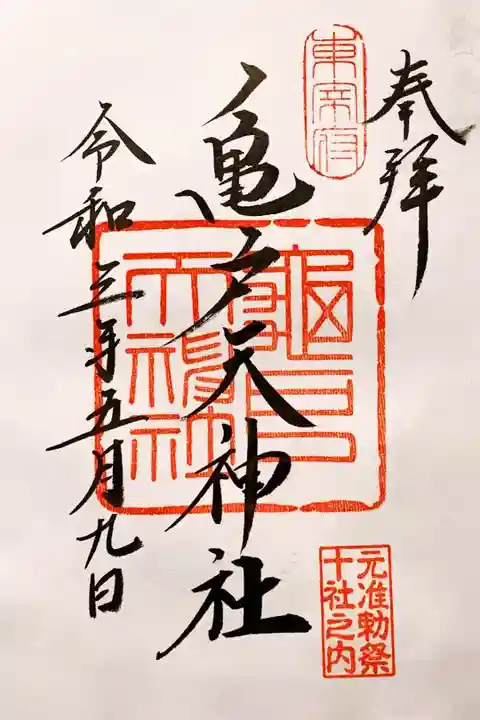 奉拝
東宰府
亀戸天神社
亀戸天神社
令和三年五月九日
元准勅祭
十社之内